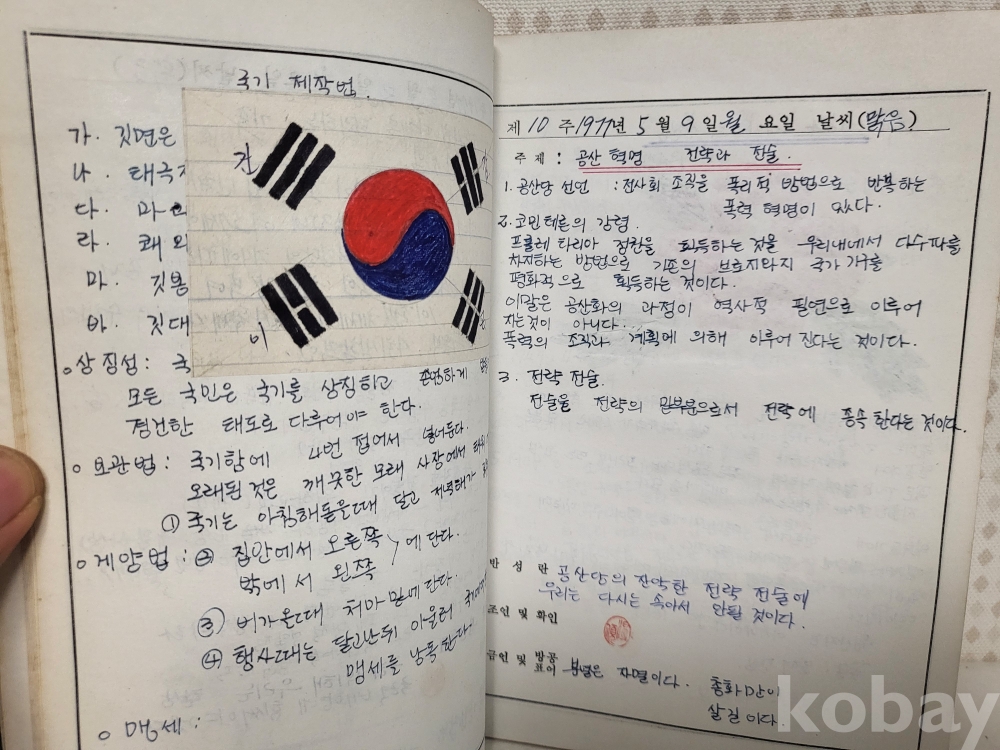 국기 제작법.
가. 깃면은
나. 태극
다.
라. 괘
마. 깃봉
바. 깃대
간
이
○상징성: 국
모든 국민은 국기를 상징하고 존엄하게
경건한 태도로 다루어야 한다.
○보관법: 국기함에 4번 접어서 넣어둔다.
오래된 것은 깨끗한 모래 사장에서
① 국기는 아침해돋을때 달고 저녁때가
○게양법: ② 집안에서 오른쪽 〉에 단다.
밖에서 왼쪽
③ 비가올때 처마 밑에 단다.
④ 행사때는 달고난뒤 아울러
맹세를 낭독한다.
○ 맹세:
제 10 주 1977년 5월 9일 월 요일 날씨(맑음)
주제: 공산 혁명 전략과 전술.
1. 공산당 선언 : 전사회 조직을 폭리적 방법으로 반복하는
폭력 혁명이 있다.
2. 코민테른의 강령.
프롤레타리아 정찬을 획득하는 것을 우리내에서 다수파를
차지하는 방법으로 기존의 브로지와지 국가 기구를
평화적으로 획득하는 것이다.
이말은 공산화의 과정이 역사적 필연으로 이루어
지는것이 아니다...
폭력의 조직과 계획에 의해 이루어 진다는 것이다.
3. 전략 전술.
전술을 전략의 일부분으로서 전략에 종속 한다는 것이다.
반성란 공산당의 잔악한 전략 전술에
우리는 다시는 속아서 안될 것이다.
조인 및 확인
금언 및 방공
표어 분열은 자멸이다. 총화만이
살길이다.
kobay